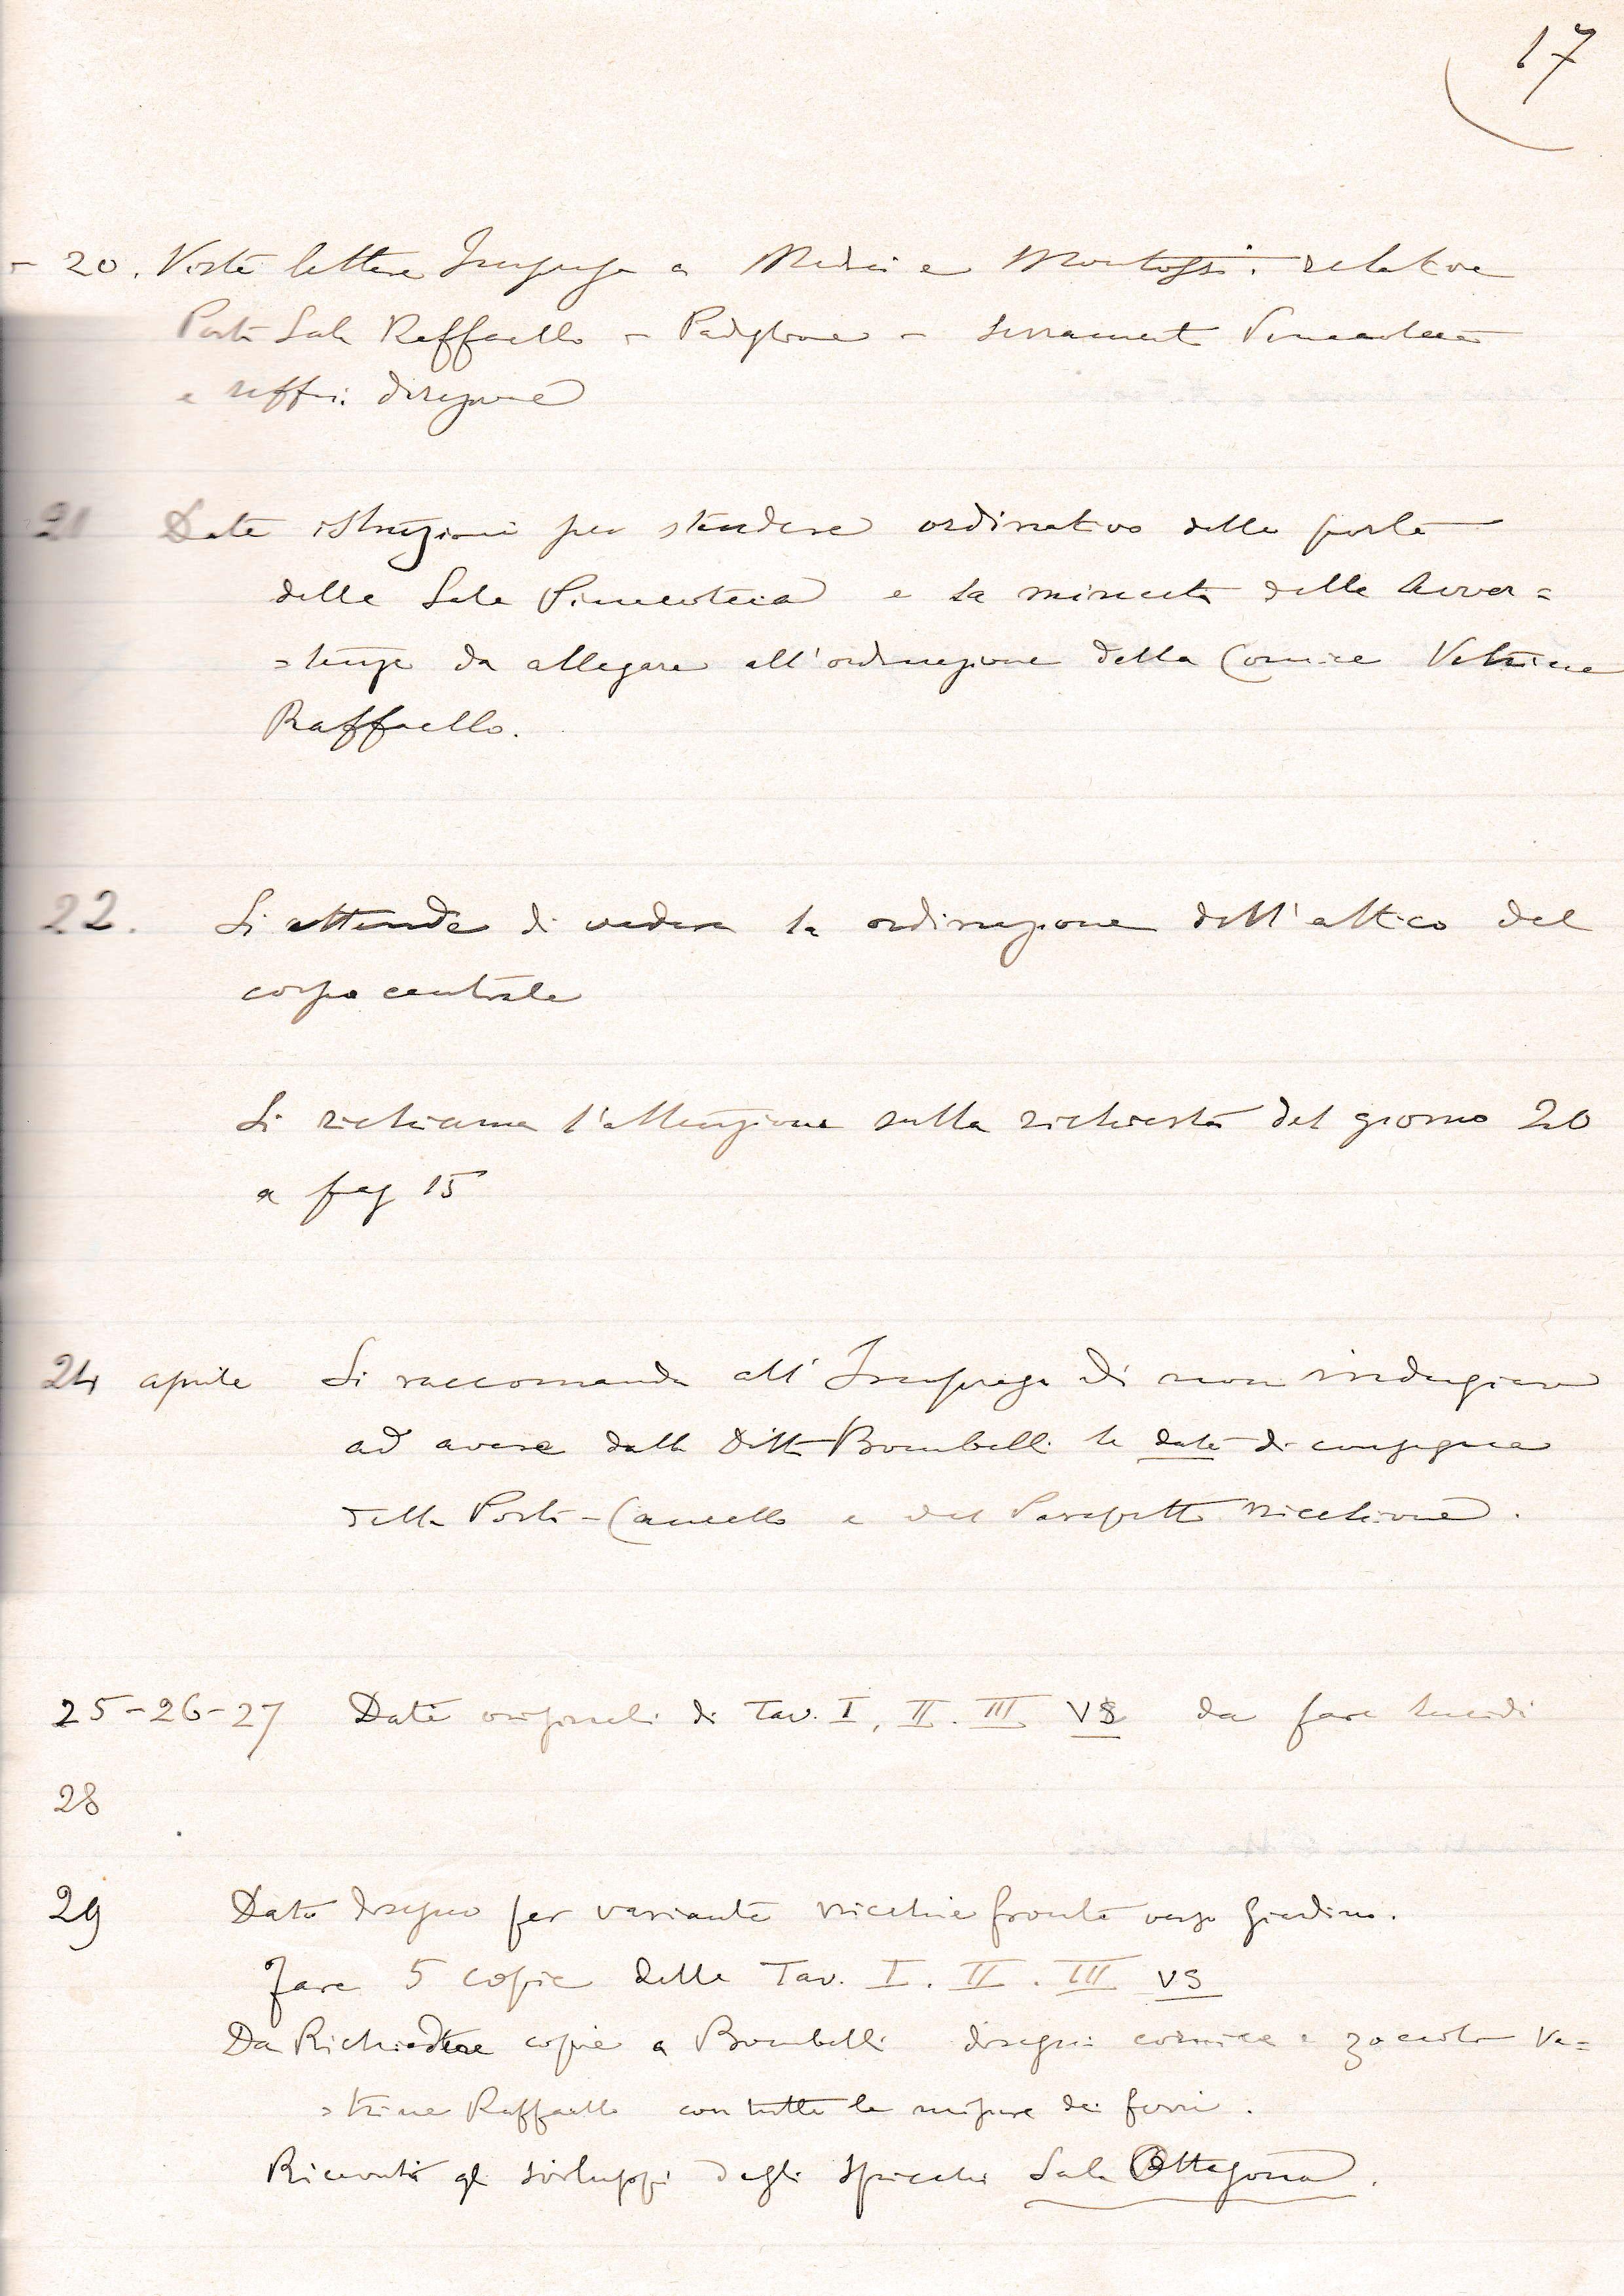 17
- 20. Viste lettere Impresa a Medici e relative
Porte Sala Raffaello - Padiglione - serramenti Pinacoteca
e direzione
21 Date istruzioni per stendere ordinativo delle porte
delle Sale Pinacoteca e la minuta delle Avver=
=tenze da allegare all'ordinazione della Cornice Vetrine
Raffaello.
22. Si attende di vedere la ordinazione dell'attico del
corpo centrale
Si richiama l'attenzione sulla richiesta del giorno 20
a pag 15
24 aprile Si raccomanda all'Impresa di non indugiare
ad avere dalla Ditta Bombelli le date di consegna
della Porta-Cancello e del Parapetto nicchione.
25-26-27 Date originali di Tav. I, II. III VS da fare lucidi
28
29 Dato disegno per variante nicchie fronte verso Giardino.
Fare 5 copie delle Tav. I. II. III VS
Da Richiedere copie a Bombelli disegni cornice e zoccolo Ve=
=trine Raffaello con tutte le misure dei ferri.
Ricevuti gli sviluppi degli spicchi Sala Ottagona.